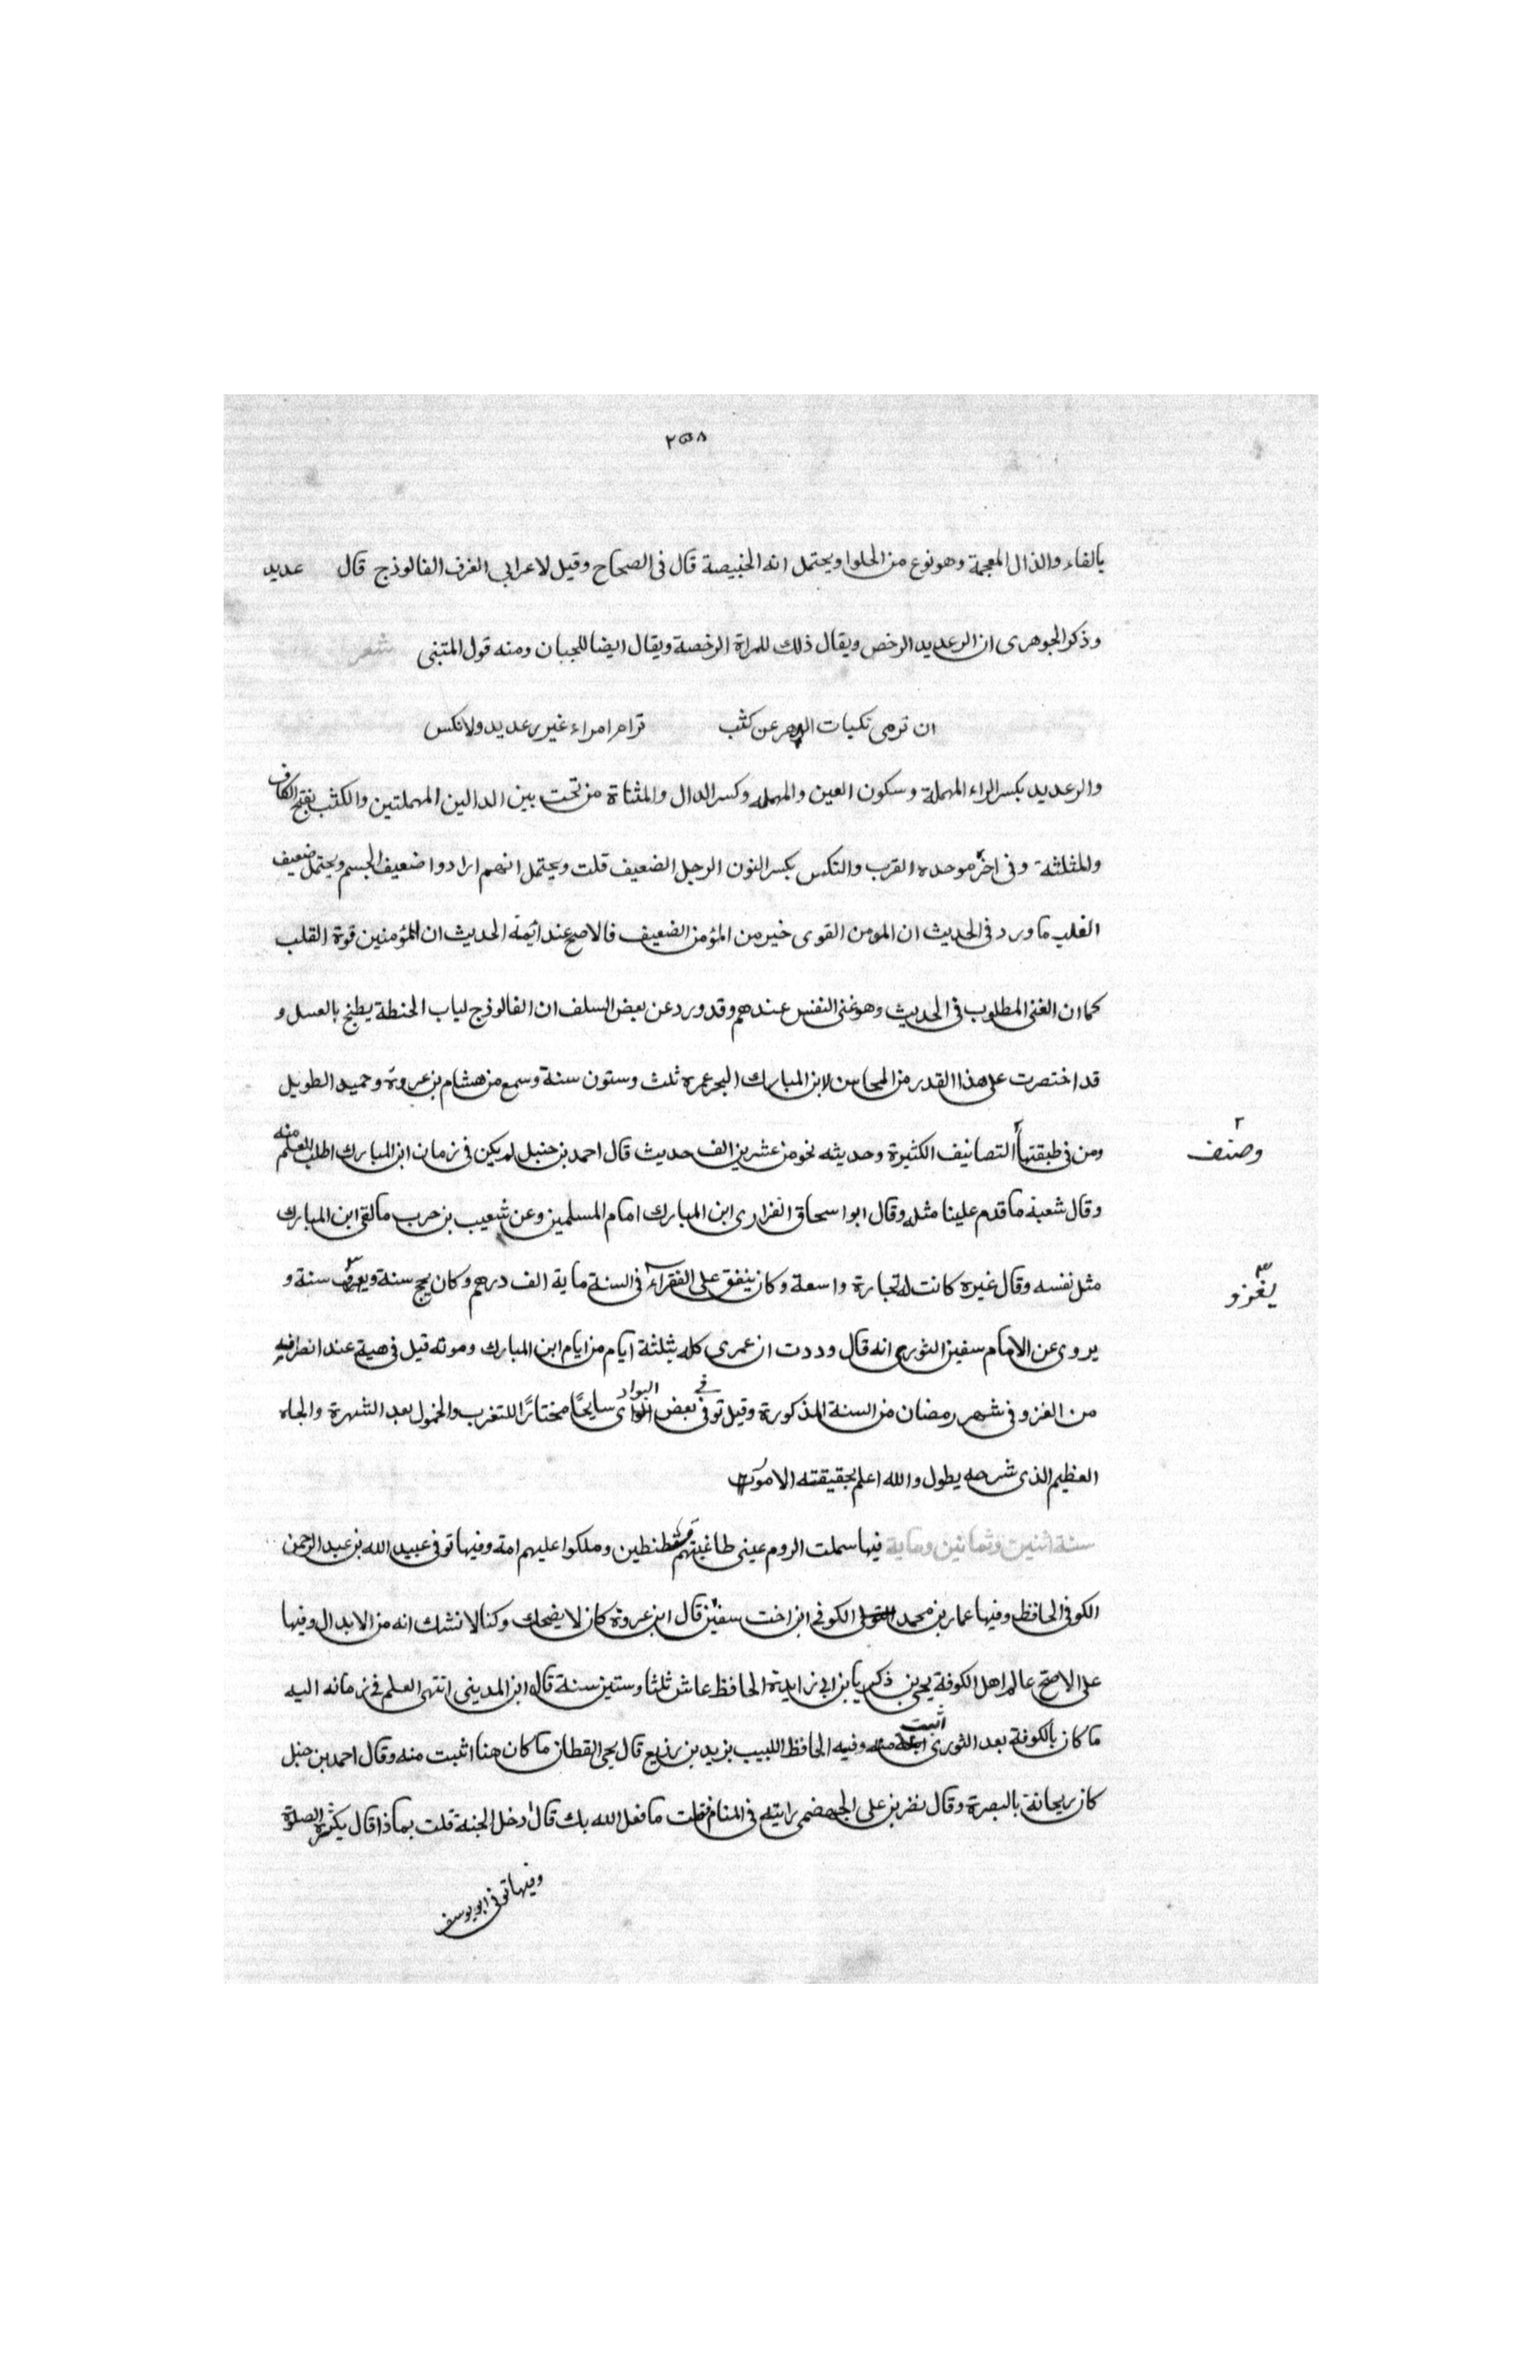 ٢٥٨
بالفاء والذال المعجمة وهو نوع من الحلوا ويحتمل انه الخبيصة قال فى الصحاح وقيل لاعرابى العرف الفالوذج قال عديد
وذكر الجوهرى ان الرعديد الرخص ويقال ذلك للمراة الرخصة ويقال ايضا للجبان ومنه قول المتنبى شعر
ان ترمى نكبات الدهر عن كثب ترام امراء غير رعديد ولا نكس
والرعديد بكسر الراء المهملة وسكون العين والمهمله وكسر الدال والمثناة من تحت بين الدالين المهملتين والكثب بفتح الكاف
والمثلثة وفى اخره موحده القرب والنكس بكسر النون الرجل الضعيف قلت ويحتمل انهم ارادوا ضعيف الجسم ويحتمل ضعيف
القلب ما ورد فى الحديث ان المومن القوى خير من المؤمن الضعيف فالاصح عند ائمة الحديث ان المؤمنين قوة القلب
كما ان الغنى المطلوب فى الحديث وهو غنى النفس عندهم وقد ورد عن بعض السلف ان الفالوذج لباب الحنطة يطبخ بالعسل و
قد اختصرت على هذا القدر من المحاسن لابن المبارك البحر عمره ثلث وستون سنة وسمع من هشام بن عروة وحميد الطويل
ومن فى طبقتهما ٢ التصانيف الكثيرة وحديثه نحو من عشرين الف حديث قال احمد بن حنبل لم يكن فى زمان ابن المبارك اطلب للعلم منه
٢ وصنف
وقال شعبة ما قدم علينا مثله وقال ابو اسحاق الفزارى ابن المبارك امام المسلمين وعن شعيب بن حرب ما لقى ابن المبارك
مثل نفسه وقال غيره كانت له تجارة واسعة وكان ينفق على الفقراء فى السنة ماية الف درهم وكان يحج سنة ويعرف ٣ سنة و
٣ يغزو
يروى عن الامام سفين الثورى انه قال وددت ان عمرى كله بثلثة ايام من ايام ابن المبارك وموته قيل فى هيت عند انصرافه
من الغزو فى شهر رمضان من السنة المذكورة وقيل توفى فى بعض البوادى سايحًا مختارًا للتغرب والخمول بعد الشهرة والجاه
العظيم الذى شرحه يطول والله اعلم بحقيقته الامور
سنة اثنين وثمانين وماية فيها سملت الروم عينى طاغيتهم قسطنطين وملكوا عليهم امه وفيها توفى عبيد الله بن عبد الرحمن
الكوفى الحافظ وفيها عمار بن محمد الكوفى ابن اخت سفين قال ابن عروة كان لا يضحك وكنا لا نشك انه من الابدال وفيها
على الاصح عالم اهل الكوفة يحيى بن ذكريا بن ابى زايدة الحافظ عاش ثلثا وستين سنة قال ابن المدينى انتهى العلم فى زمانه اليه
ما كان بالكوفة بعد الثورى اثبت منه وفيه الحافظ اللبيب يزيد بن زريع قال يحيى القطان ما كان هنا اثبت منه وقال احمد بن حنبل
كان ريحانة بالبصرة وقال نضر بن على الجهضمى رايته فى المنام فقلت ما فعل الله بك قال ادخل الجنة قلت بماذا قال بكثرة الصلوة
وفيها توفى ابو يوسف